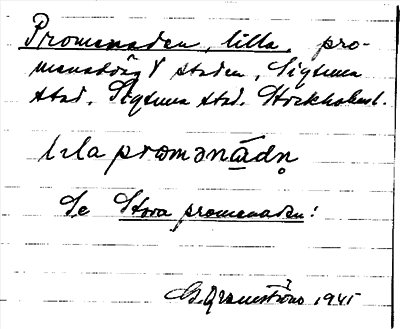 Promenaden, lilla, pro-
menadväg V staden, Sigtuna
stad. Sigtuna stad. Stockholms l.
lila promǝnádn̥
Se Stora promenaden!
1945